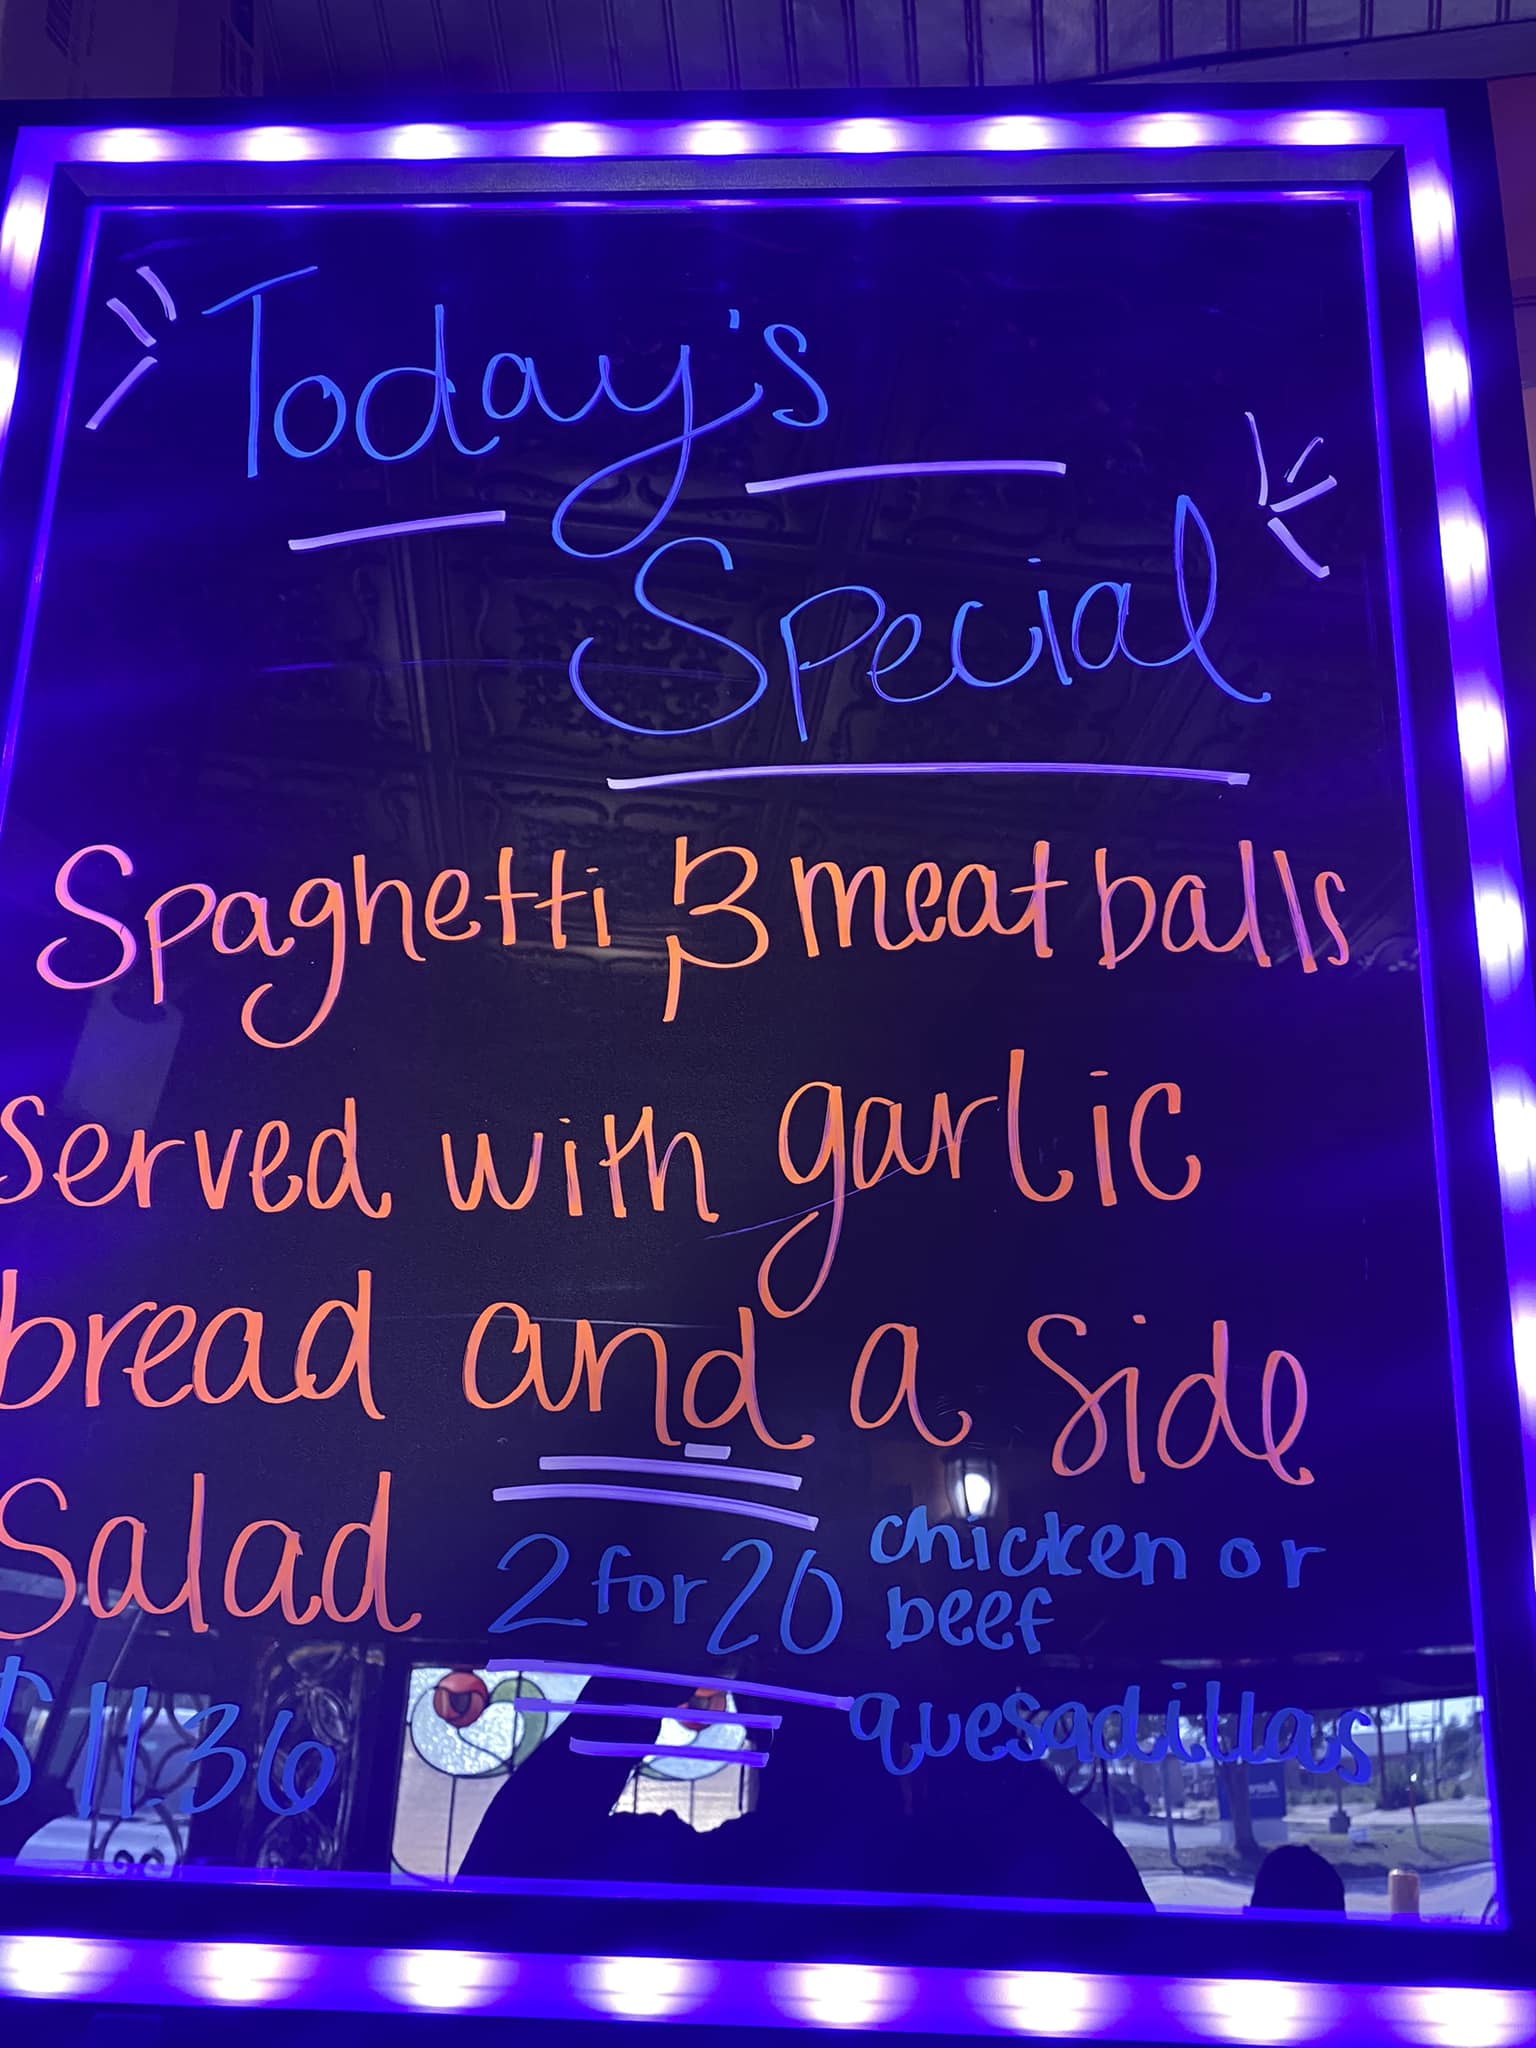 Today's
Special
Spaghetti & meatballs
served with garlic
bread and a side
Salad
2 for 20 chicken or
beef
quesadillas
$11.36